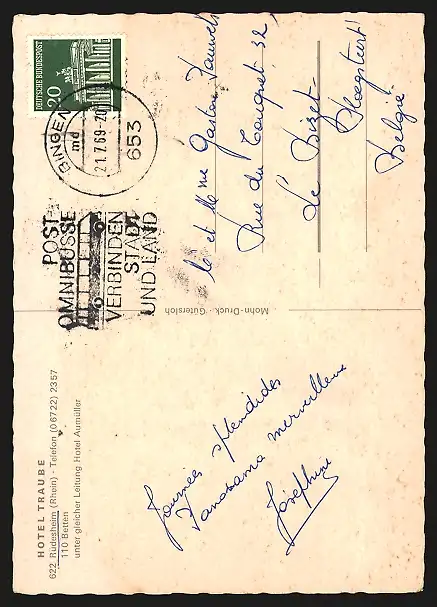 HOTEL TRAUBE
622 Rüdesheim (Rhein) - Telefon (06722) 2357
110 Betten
unter gleicher Leitung Hotel Aumüller
Journées splendides
Panorama merveilleux
Joséphine
Mohn-Druck · Gütersloh
DEUTSCHE BUNDESPOST
20
BINGEN
md
21.7.69-20
653
POST
OMNIBUSSE
VERBINDEN
STADT
UND LAND
et Mme Gaston
Rue du Touquet 32
Le Bizet
Ploegsteert
Belgie